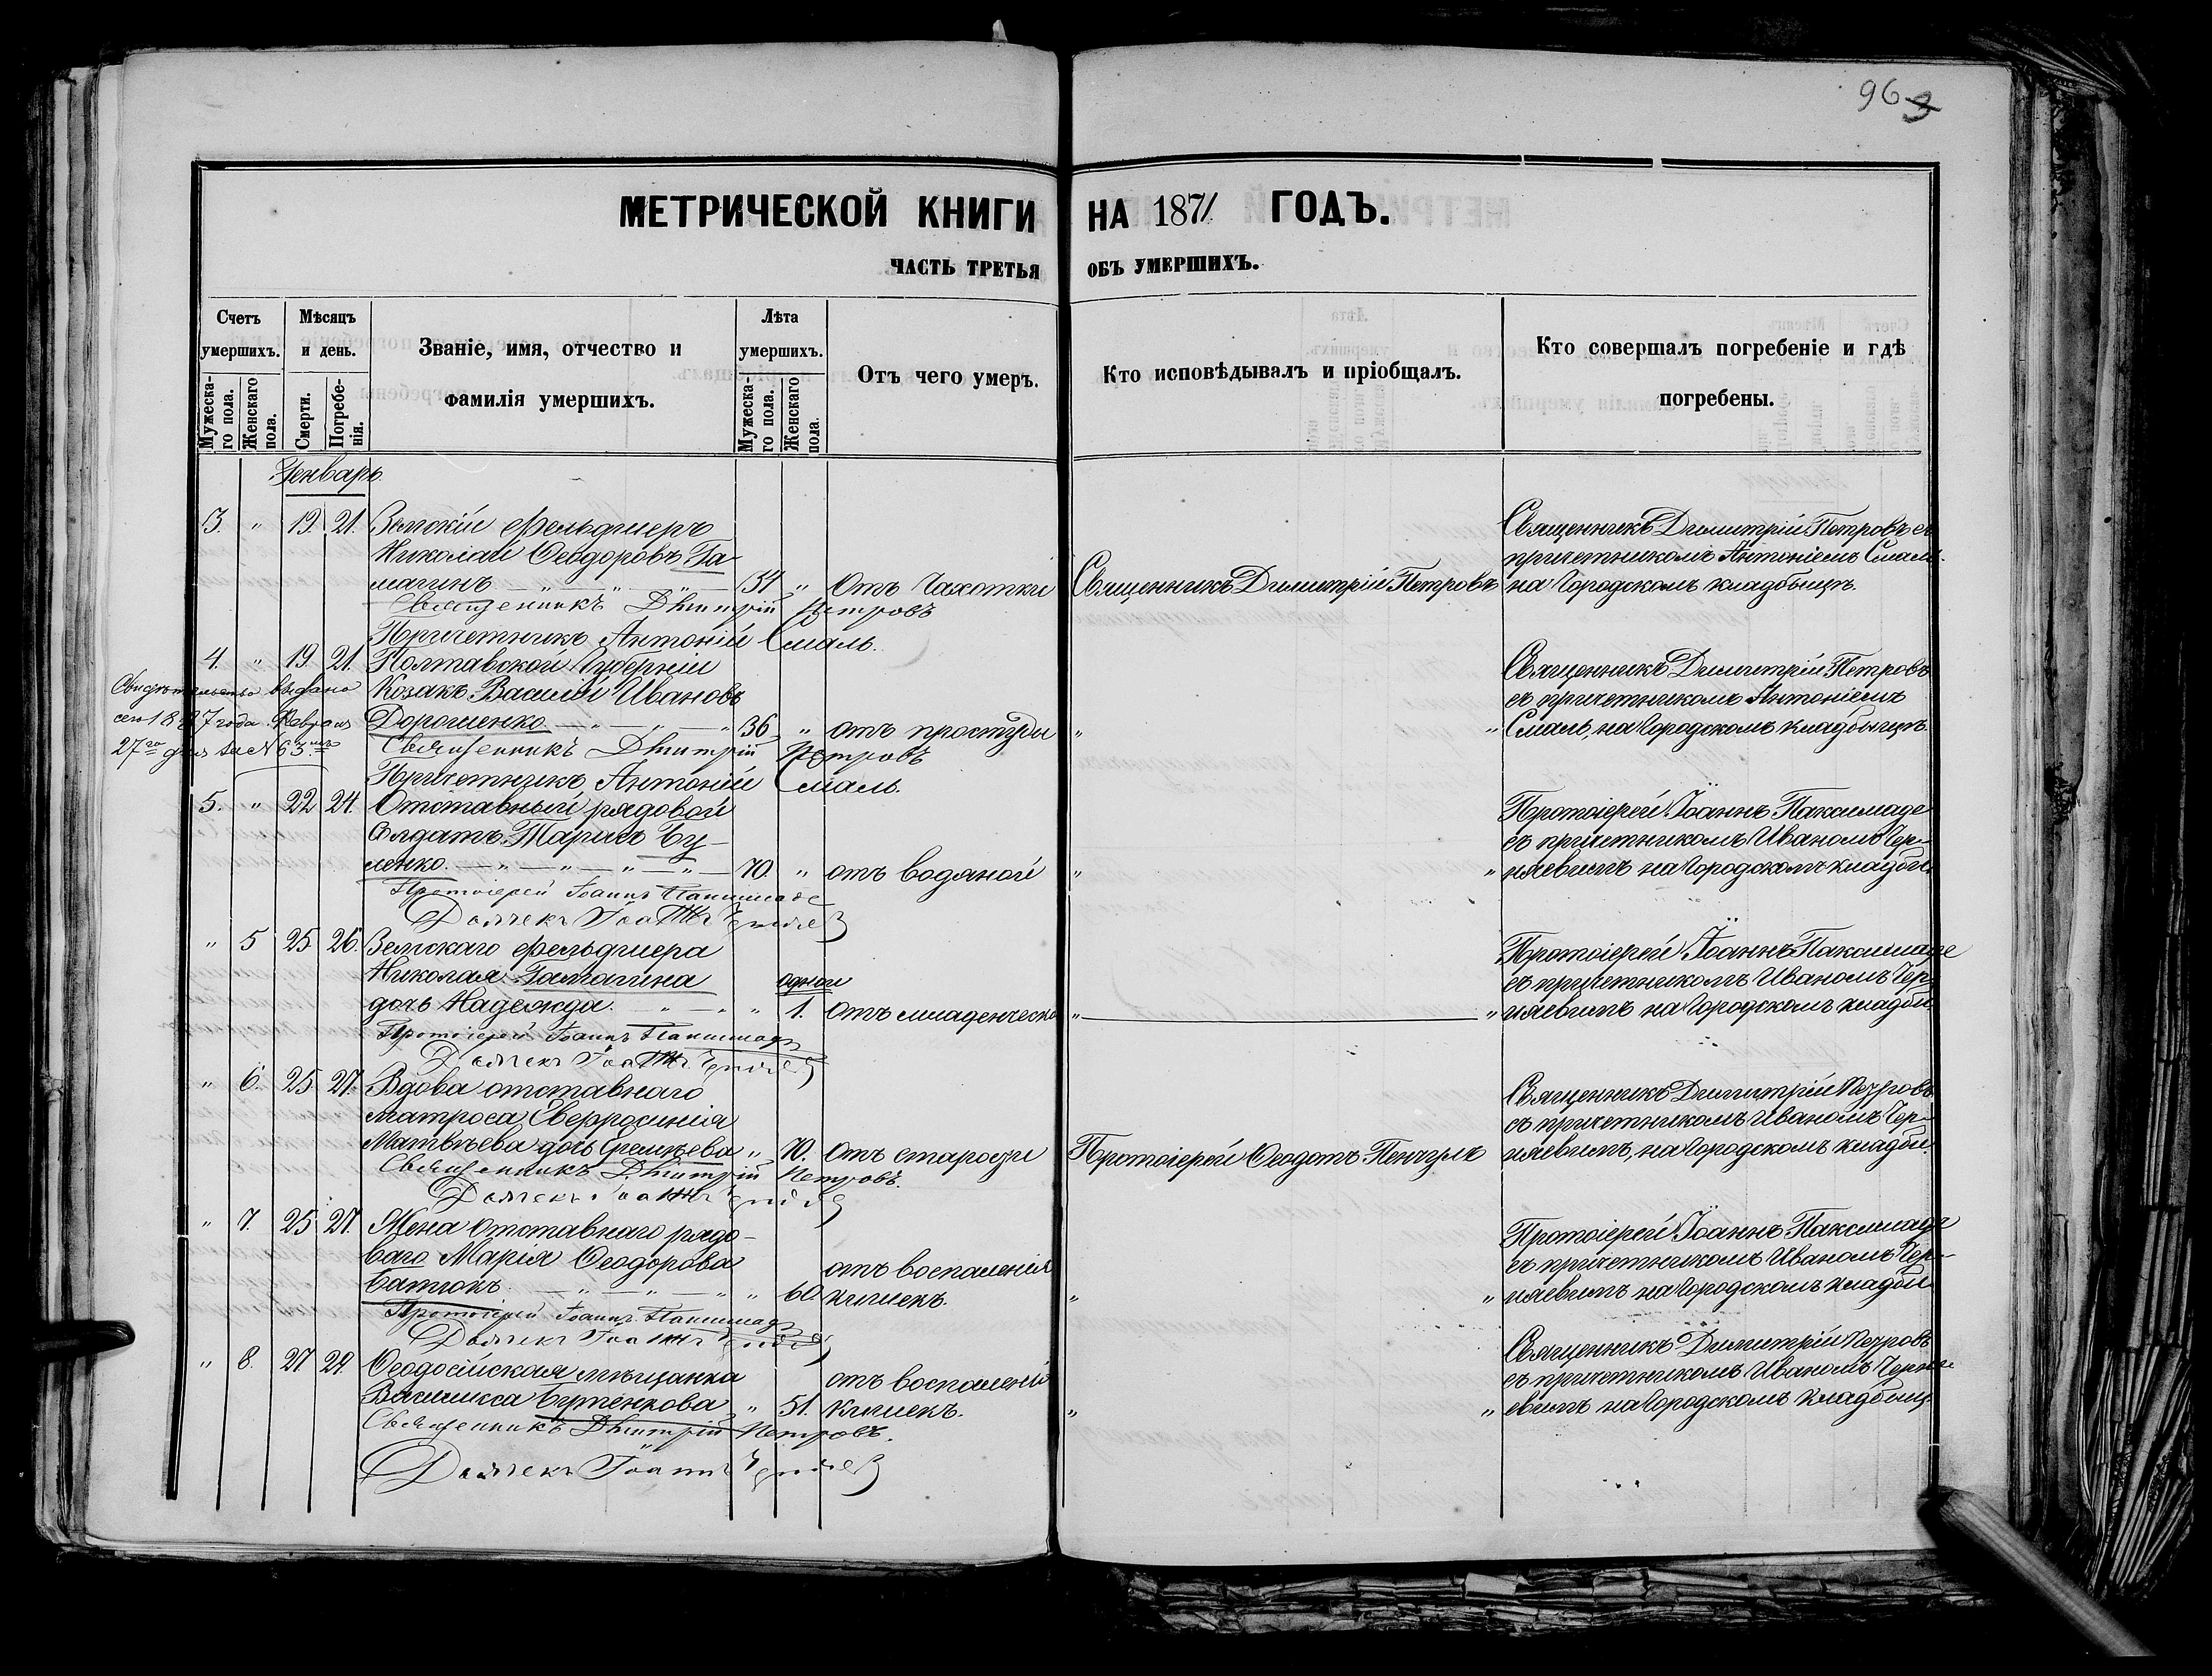 96
МЕТРИЧЕСКОЙ КНИГИ НА 1871 ГОДЪ.
ЧАСТЬ ТРЕТЬЯ ОБЪ УМЕРШИХЪ.
Счетъ умершихъ.
Мужеска-
го пола.
Женскаго
пола.
Мѣсяцъ
и день.
Смерти.
Погребе-
нія.
Званіе, имя, отчество и
фамилія умершихъ.
Лѣта
умершихъ.
Мужеска-
го пола.
Женскаго
пола.
Отъ чего умеръ.
Кто исповѣдывалъ и пріобщалъ.
Кто совершалъ погребеніе и гдѣ
погребены.
Генварь
3. " 19. 21. Земскій фельдшеръ
Николай Ѳеодоровъ Га-
магинъ 37 " Отъ Чахотки Священникъ Димитрій Петровъ
Священникъ Димитрій Петровъ съ
причетникомъ Антоніемъ Смаль
на Городскомъ кладбищѣ.
Священникъ Дмитрій Петровъ
Причетникъ Антоній Смаль.
4. " 19. 21. Полтавской Губерніи
Козакъ Василій Ивановъ
Дорошенко 36 " отъ простуды "
Священникъ Димитрій Петровъ
съ причетникомъ Антоніемъ
" Смаль, на Городскомъ кладбищѣ.
Свидѣтельство выдано
1887 года Февраля
27го дня за № 63
Священникъ Дмитрій Петровъ
Причетникъ Антоній Смаль.
5. " 22 24. Отставный рядовой
Солдатъ Тарасъ Бу-
ленко. 70. " отъ водяной "
Протоіерей Іоаннъ
съ причетникомъ Иваномъ Чер-
" няевымъ на Городскомъ кладби.
Протоіерей Іоаннъ
Дьячекъ Іоаннъ
" 5 25 26. Земскаго фельдшера
Николая Гамагина
дочь Надежда. " 1. отъ младенческой "
одного
Протоіерей Іоаннъ
съ причетникомъ Иваномъ Чер-
" няевымъ на Городскомъ кладби.
Протоіерей Іоаннъ
Дьячекъ Іоаннъ
" 6. 25. 27. Вдова отставнаго
матроса Евфросинія
Матвѣева дочь Еремѣева " 70. Отъ старости Протоіерей Ѳеодотъ
Священникъ Димитрій Петровъ
съ причетникомъ Иваномъ Чер-
няевымъ, на Городскомъ кладби.
Священникъ Дмитрій Петровъ.
Дьячекъ Іоаннъ
" 7. 25 27. Жена отставнаго рядо-
ваго Марія Ѳеодорова
Батюкъ. " 60. отъ воспаленія
кишекъ. "
Протоіерей Іоаннъ
съ причетникомъ Иваномъ Чер-
" няевымъ на Городскомъ кладби
Протоіерей Іоаннъ
Дьячекъ Іоаннъ
" 8. 27 29. Ѳеодосійская мѣщанка
Василиса Бутенкова " 51. отъ воспаленій
кишекъ. "
Священникъ Димитрій Петровъ
съ причетникомъ Иваномъ Черня-
" евымъ на Городскомъ кладбищ.
Священникъ Дмитрій Петровъ.
Дьячекъ Іоаннъ